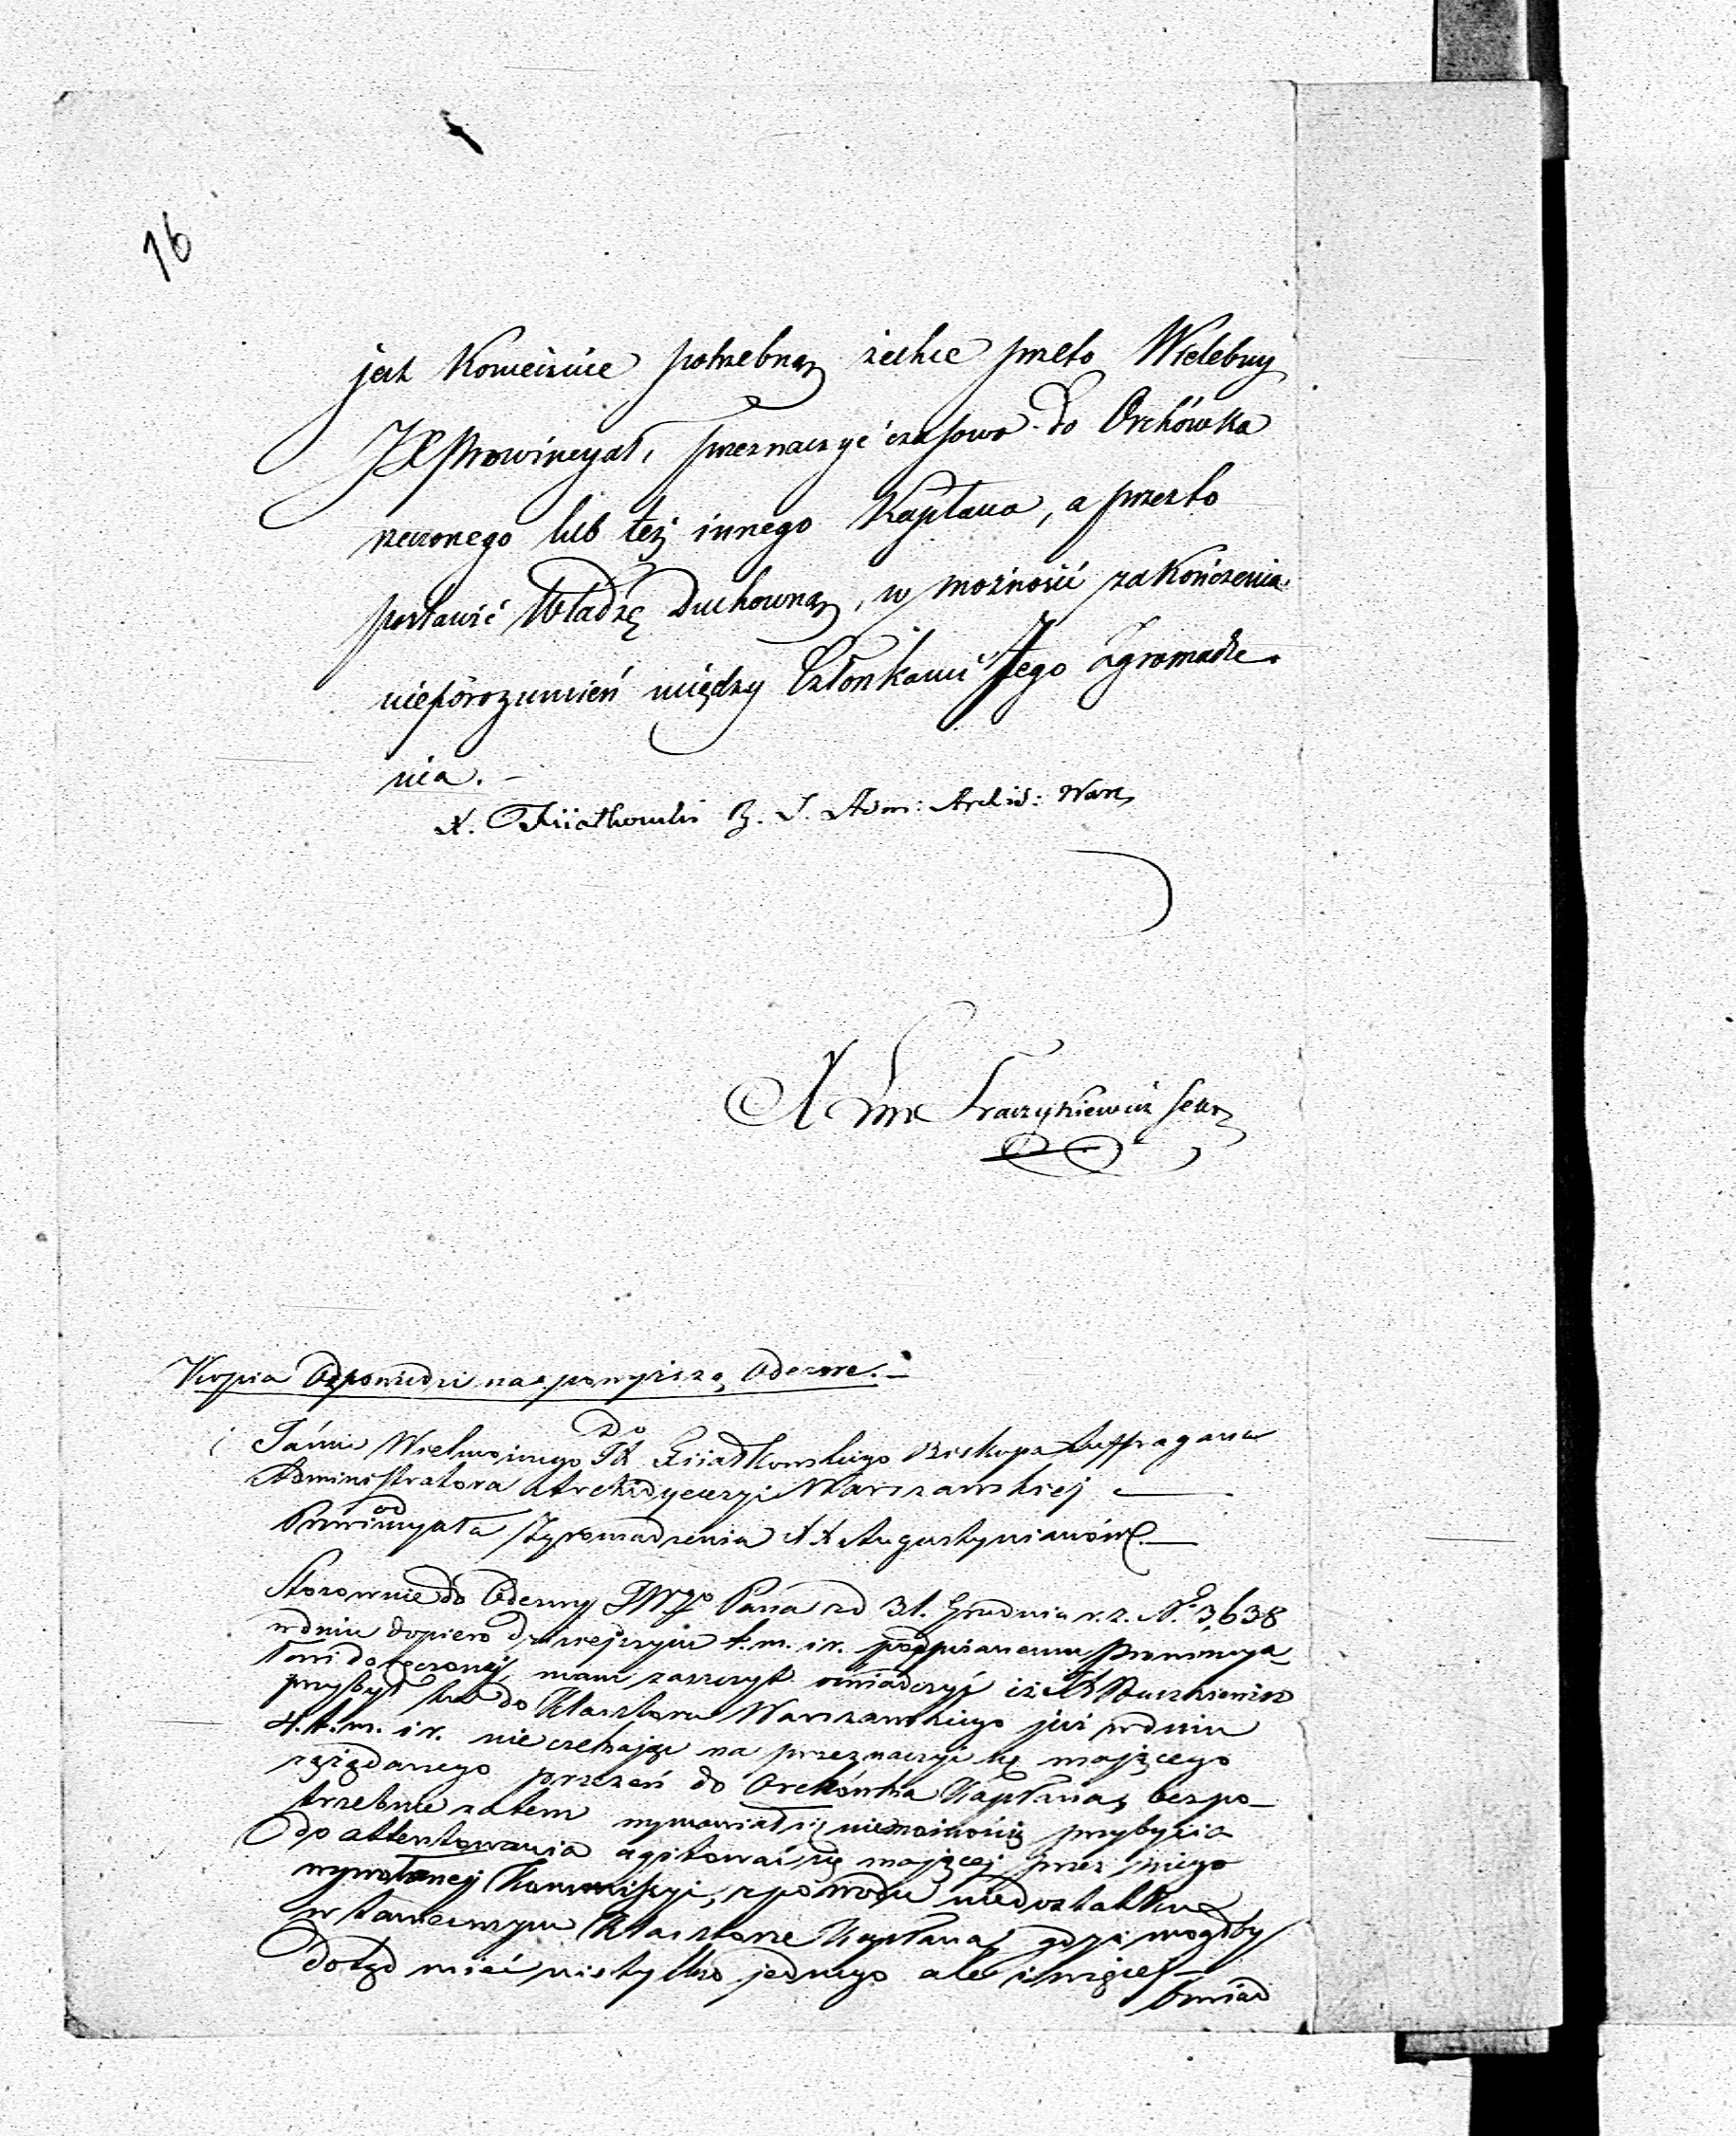 16
jest koniecznie potrzebną zechce przeto Wielebny
JX Prowincyał, przeznaczyć czasowo do Orchówka
rzeczonego lub też innego Kapłana, a przeto
postawić Władzę Duchowną, w możność zakończenia
nieporozumień między Członkami Jego Zgromadze-
nia. –
X. Fiiałkowski B. S. Adm: Archid: Warz
X
Kopia Odpowiedzi na powyższą Odezwę. –
Do
Jaśnie Wielmożnego JX Fiiałkowskiego Biskupa Suffragana
Administratora Archidyecezyi Warszawskiej
od
Prowincyała Zgromadzenia XX Augustyianów. –
Stosownie do Odezwy JWgo Pana z d 31. Grudnia r. z. No 3,638
w dniu dopiero dzisiejszym t. m. i r. podpisanemu Prowincya-
łowi doręczonej, mam zaszczyt oświadczyć iż X
przybył tu do Klasztoru Warszawskiego już w dniu
4. t. m. i r. nie czekając na przeznaczyć się mającego
zażądanego przezeń do Orchówka Kapłana, bezpo-
trzebnie zatem wymawiał się niemożnością przybycia
do attentowania agitować się mającej przez niego
wywołanej Kommissyi, z powodu niedostatku
w tamecznym Klasztorze Kapłana, gdyż mógłby
dotąd mieć nie tylko jednego ale i więcej –